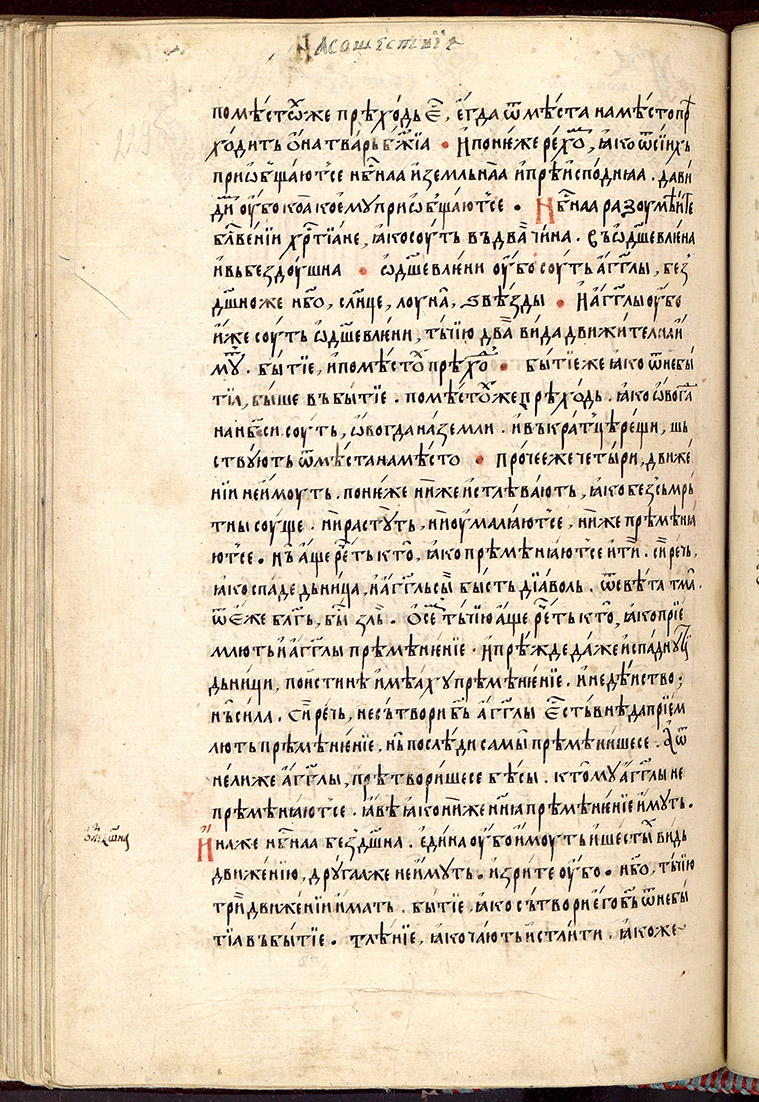 Насошествїе
помѣстѡ҃же прѣхо́дь е҆с҃, е҆гда ѿмѣ́ста намѣ́стопрѣ
хо́дить ѻ҆натва́рьбж҃їа • И҆поне́же реко́х, ꙗ҆ко ѿси́ихь
приѡ҆бща́ютсе нб҃наа и҆зе́мльнаа и҆прѣи́спѡ́днꙗа . да ви
ди оу҆́бо каа кое́му приѡбща́ютсе • Нб҃наа разоумѣ́ите
блг҃ве́нїи хр҃тїа́не, ꙗ҆косоуть въдва̀ чи́на . въѡдш҃евлѥ́на
и҆вьбездоу́шна • ѡ҆дш҃евлѥни оу҆́бо соуть а҆гг҃лы, без
дш҃ноже нб҃о, слн҃це, лоуна̀, ѕвѣ́зды • И҆а҆гг҃лы оу҆́бо
и҆́же соуть ѡ҆дш҃евлѥ́ни, тъ́чїю два̀ ви́да движи́телнаа и҆́
мут . бы́тїе, и҆помѣ́сто прѣхо́д • бы́тїеже ꙗ҆ко ѿнебы
тїа, бы́ше въбы́тїе . помѣ́стоже прѣхо́дь . ꙗ҆ко ѡ҆вогда
нанб҃си соуть, ѡ҆вогда на земли . и҆въкра́тцѣ рещи, шь
ству́ють ѿмѣ́ста намѣ́сто • про́чееже четы́ри, движе́
нїи неи́моуть . поне́же ни́же и҆стлѣва́ють, ꙗ҆ко бесьмрь
тны соуще . ни́расту́ть, ни́оумалꙗ́ютсе, ни́же прѣмѣнꙗ
ютсе • нъ а҆́ще ре́ть кто̀, ꙗ҆ко прѣмѣнꙗ́ютсе и҆ти́и . си́рѣчь,
ꙗ҆ко спаде дьни́ца, и҆ а҆гг҃льсы̀ бысть дїа́воль . ѿсвѣ́та тма̀ .
ѿ е҆́же блг҃ь, бы̀ зль . ѻ҆се́м тъ́чїю а҆́ще ре́ть кто̀, ꙗ҆ко прїе́
млють и҆ а҆гг҃лы прѣмѣне́нїе . и҆пре́жде да́же и҆спаднути
дьни́ци, пои́стинѣ и҆мѣаху прѣмѣне́нїе . и҆недѣ́иство ;
нъ си́ла . си́рѣчь, несътвори бг҃ь а҆гг҃лы е҆сть вънѣ́ да прїем
лють прѣмѣне́нїе, нъ послѣди самы прѣмѣни́шесе . а҆ ѿ
не́лиже а҆гг҃лы, прѣтвори́шесе бѣ́сы . кто́му а҆гг҃лы не
прѣмѣнꙗ́ютсе . ꙗ҆вѣ ꙗ҆ко ни́же нн҃ꙗ прѣмѣне́нїе и҆муть .
И҆наже нб҃наа бездш҃на . е҆ди́на оу҆́бо и҆́моуть и҆ ше́стых видь
движе́нїю, дру́гааже неи́муть . и҆ зри́те оу҆́бо . нб҃о, тъ́чїю
три̏ движе́нїи и҆мать . бы́тїе, ꙗ҆ко сътвори е҆го бг҃ь ѿнебы
тїа въбы́тїе . тлѣ́нїе, ꙗ҆ко ча́ють и҆стли́ти . ꙗ҆коже